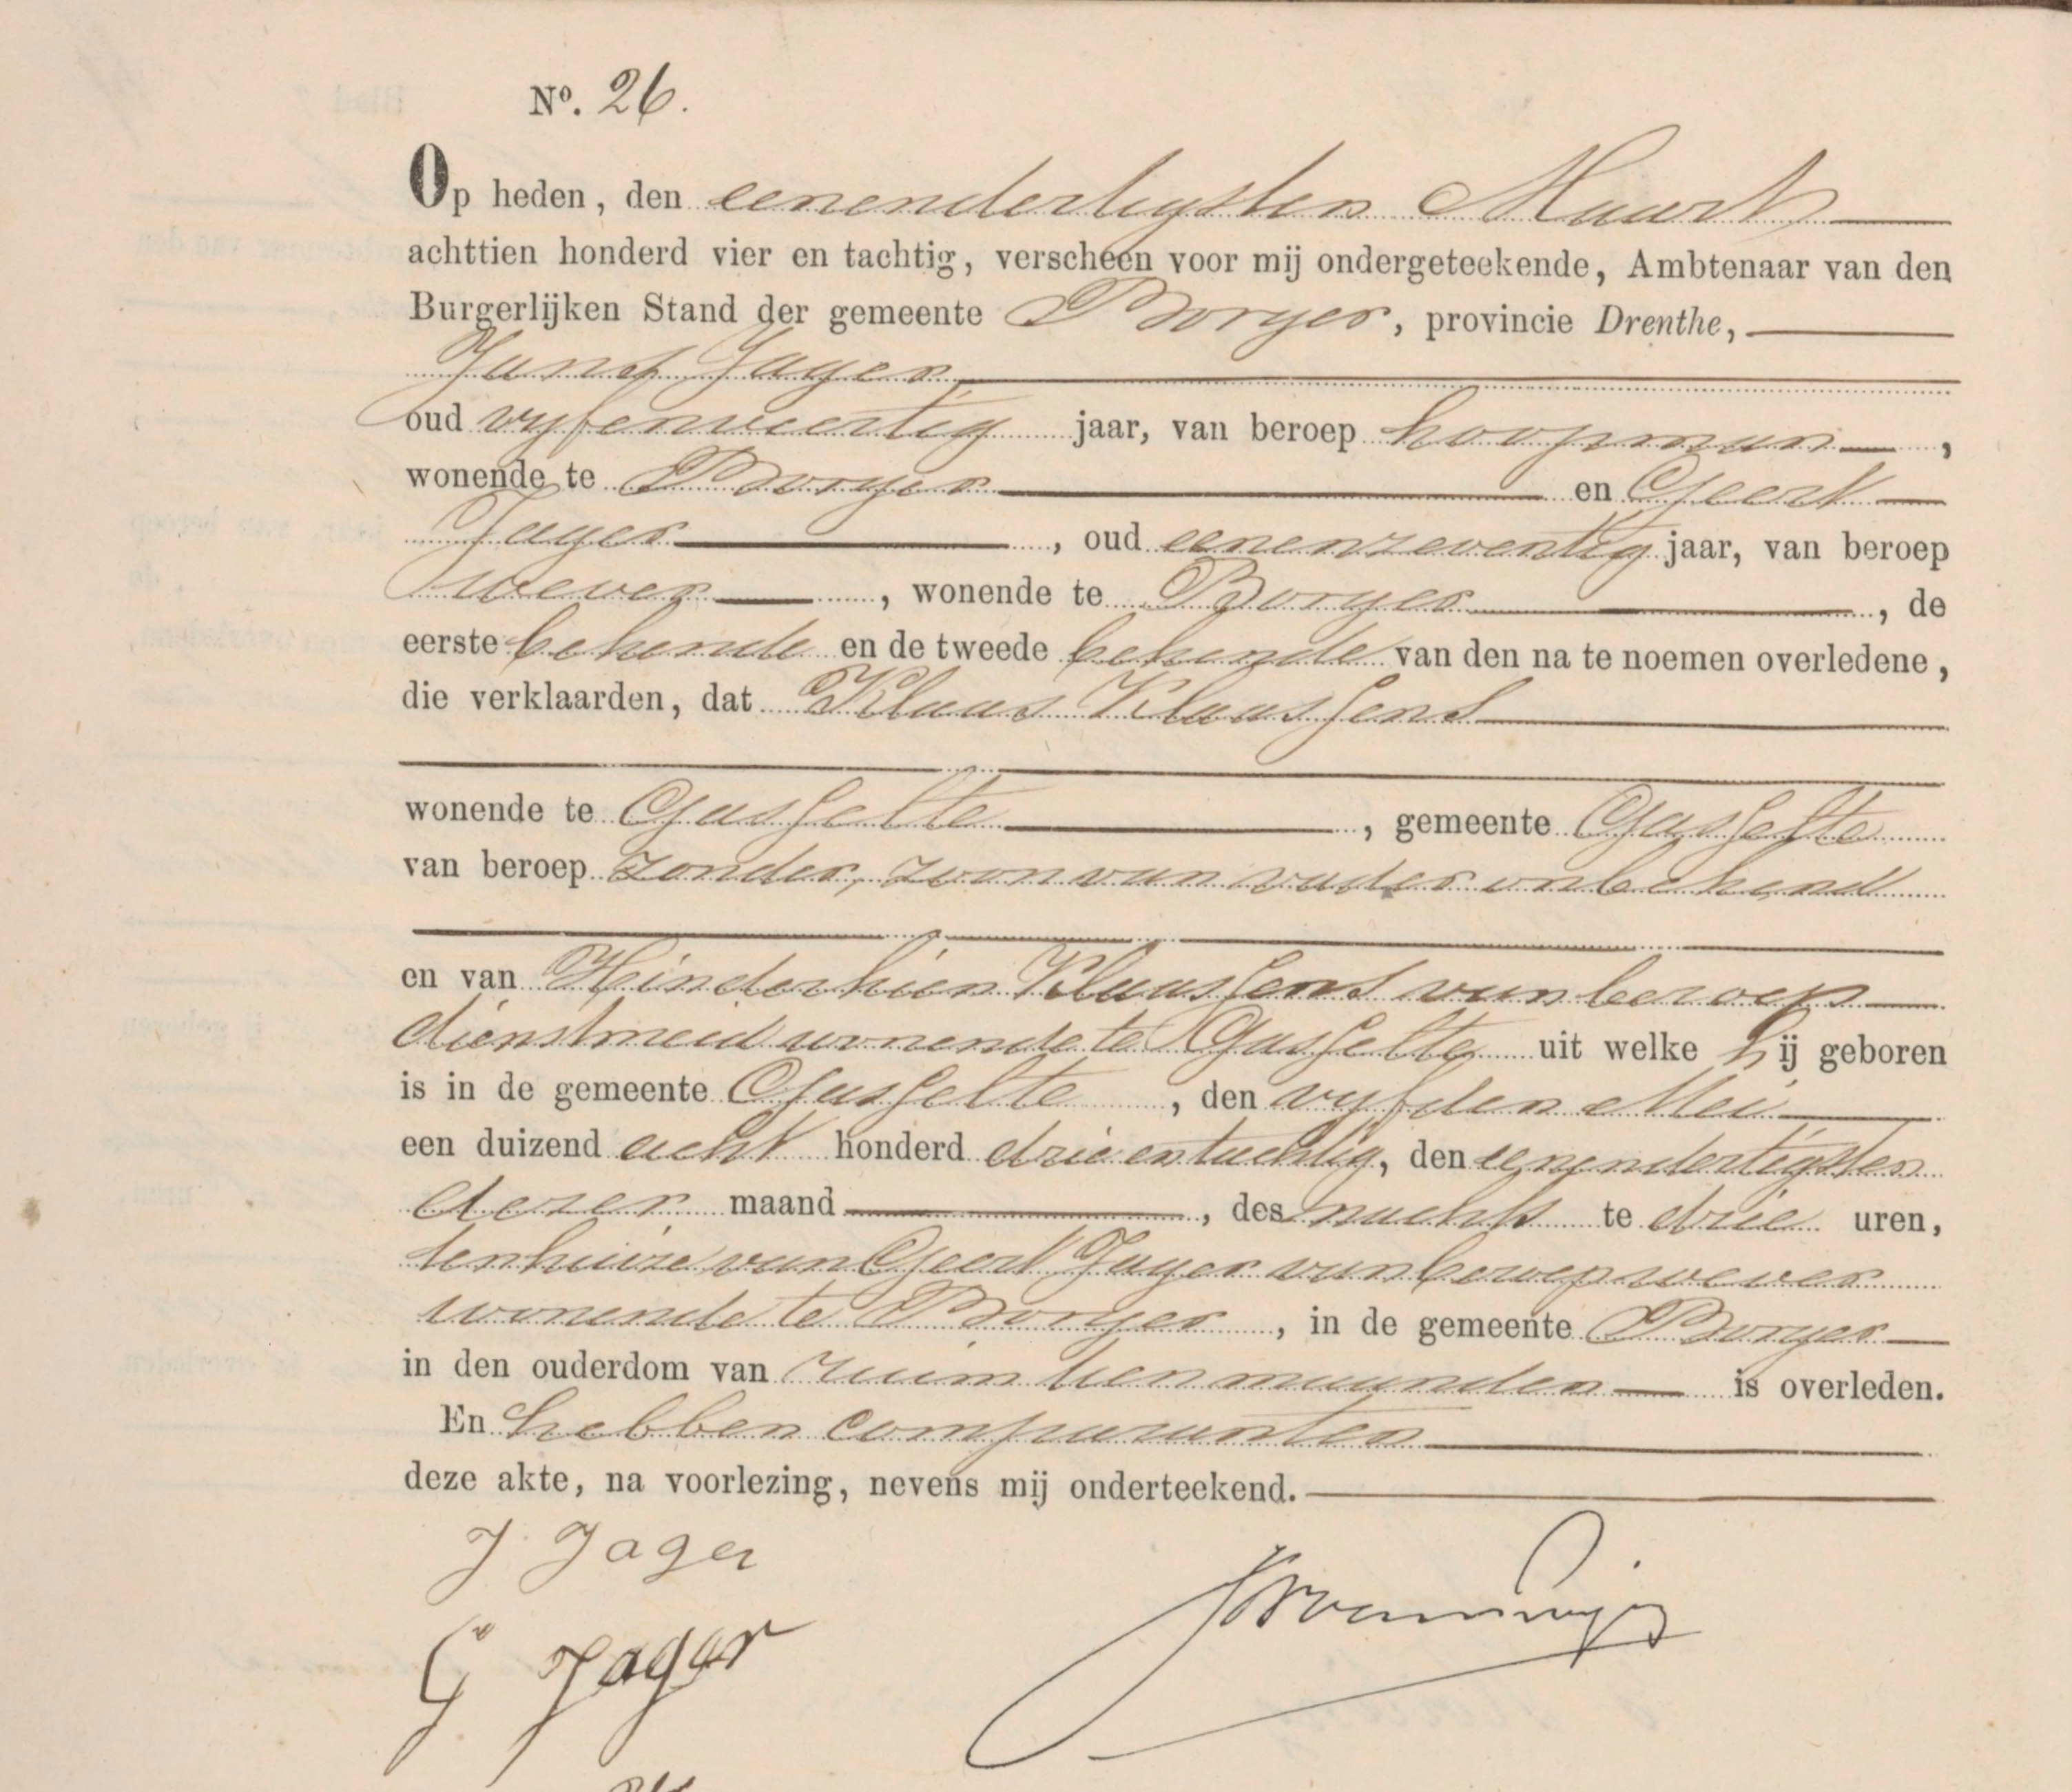 Nº. 26.
Op heden, den eenendertigsten Maart
achttien honderd vier en tachtig, verscheen voor mij ondergeteekende, Ambtenaar van den
Burgerlijken Stand der gemeente Borger, provincie Drenthe,
Jans Jager
oud vyfenveertig jaar, van beroep koopman,
wonende te Borger en Geert
Jager, oud eenenzeventig jaar, van beroep
wever, wonende te Borger, de
eerste bekende en de tweede bekende van den na te noemen overledene,
die verklaarden, dat Klaas Klaassens
wonende te Gasselte, gemeente Gasselte
van beroep zonder, zoon van vader onbekend
en van Hinderkien Klaassens van beroep
dienstmeid wonende te Gasselte uit welke hij geboren
is in de gemeente Gasselte, den vyfden Mei
een duizend acht honderd drie en tachtig, den eenendertigsten
dezer maand, des nachts te drie uren,
ten huize van Geert Jager van beroep wever
wonende te Borger, in de gemeente Borger
in den ouderdom van ruim tien maanden is overleden.
En hebben comparanten
deze akte, na voorlezing, nevens mij onderteekend.
J. Jager
G Jager